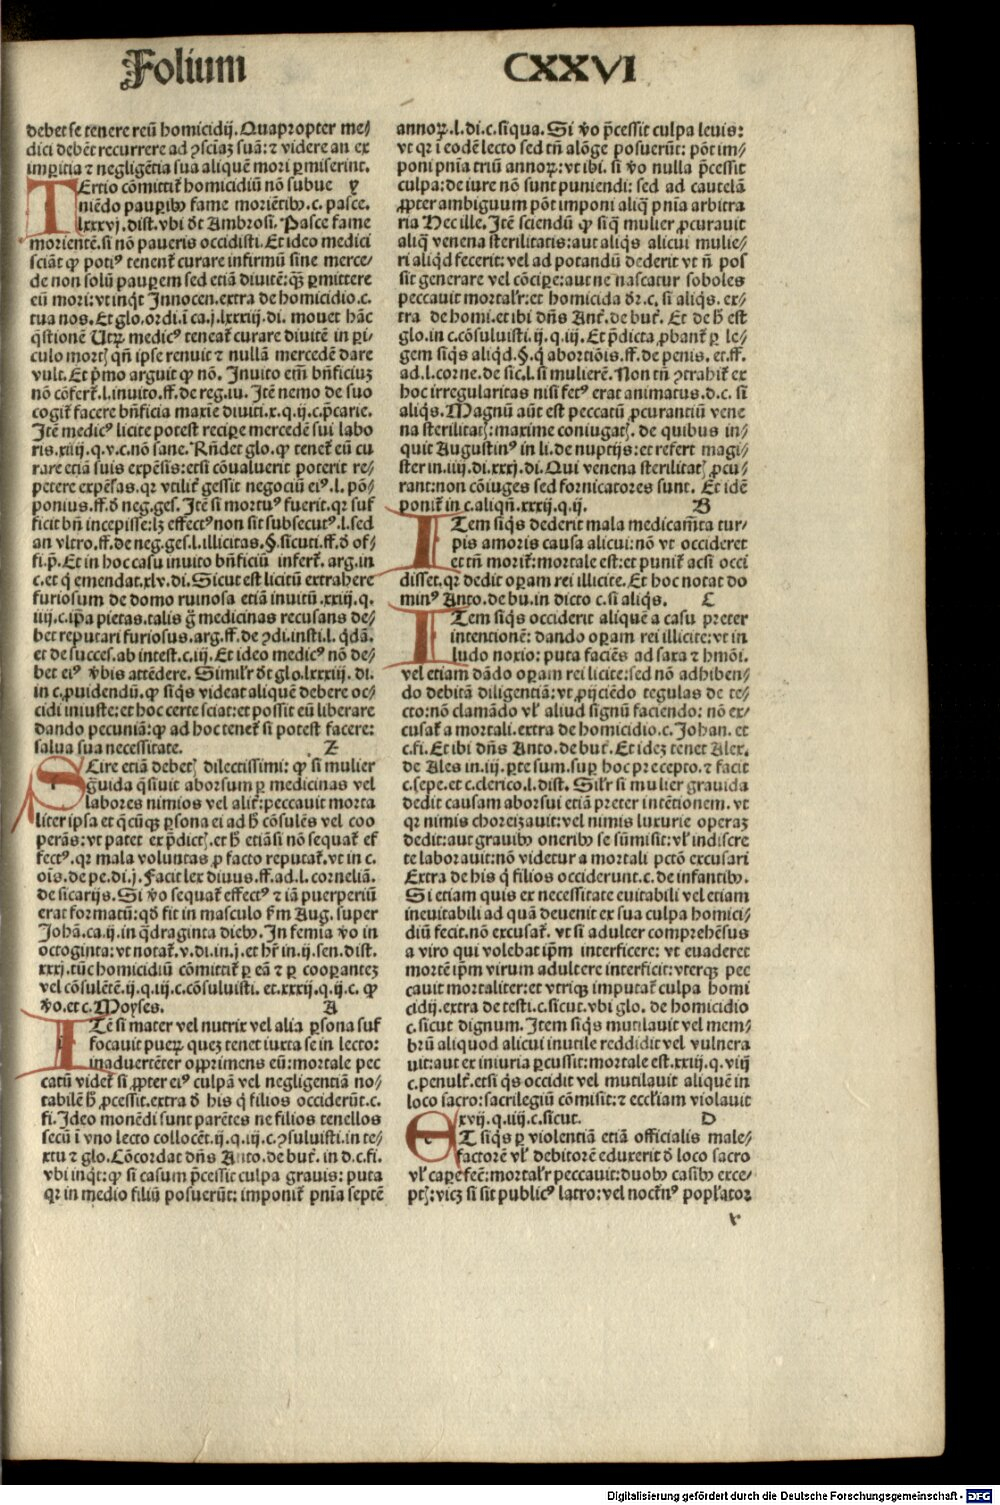 Folium CXXVI
debet se tenere reū homicidij. Quapropter me/
dici debēt recurrere ad ↄsciaʒ suā: ⁊ videre an ex
imꝑitia ⁊ negligētia sua aliquē mori ꝑmiserint.
TErtio cōmittit̃ homicidiū nō subue y
niēdo pauꝑibꝰ fame moriētibꝰ. c. pasce.
lxxxvj. dist. vbi dt̄ Ambrosi. Pasce fame
morientē. si nō paueris occidisti. Et ideo medici
sciāt ꝙ potiꝰ tenent̃ curare infirmū sine merce/
de non solū pauꝑem sed etiā diuitē: qꝫ ꝑmittere
eū mori: vt inqͥt Innocen. extra de homicidio. c.
tua nos. Et glo. ordi. ī ca. j. lxxxiij. di. mouet hāc
q̄stionē Utꝝ medicꝰ teneat̃ curare diuitē in ꝑi/
culo mortꝭ qñ ipse renuit ⁊ nullā mercedē dare
vult. Et p̄mo arguit ꝙ nō. Inuito em̄ bñficiuʒ
nō cōfert̃. l. inuito. ff. de reg. iu. Itē nemo de suo
cogit̃ facere bñficia maxīe diuiti. x. q. ij. c. p̄carie.
Itē medicꝰ licite potest reciꝑe mercedē sui labo
ris. xiiij. q. v. c. nō sane. Rñdet glo. ꝙ tenet̃ eū cu
rare etiā suis expēsis: etsi cōualuerit poterit re/
petere expēsas. qr vtilit̃ gessit negociū eiꝰ. l. pō/
ponius. ff. d̄ neg. ges. Itē si mortuꝰ fuerit. qr suf
ficit bñ incepisse: lꝫ effectꝰ non sit subsecutꝰ. l. sed
an vltro. ff. de neg. ges. l. illicitas. §. sicuti. ff. d̄ of/
fi. p̄. Et in hoc casu inuito bñficiū infert̃. arg. in
c. et qͥ emendat. xlv. di. Sicut est licitū extrahere
furiosum de domo ruinosa etiā inuitū. xxiij. q.
iiij. c. ip̄a pietas. talis g̊ medicinas recusans de/
bet reputari furiosus. arg. ff. de ↄdi. insti. l. qͥdā.
et de succes. ab intest. c. iij. Et ideo medicꝰ nō de/
bet eiꝰ v̄bis attēdere. Simil'r dt̄ glo. lxxxiij. di.
in c. ꝓuidendū. ꝙ siqͥs videat aliquē debere oc/
cidi iniuste: et hoc certe sciat: et possit eū liberare
dando pecuniā: ꝙ ad hoc tenet̃ si potest facere:
salua sua necessitate. Z
SCire etiā debetꝭ dilectissimi: ꝙ si mulier
g̃uida q̄siuit aborsum ꝑ medicinas vel
labores nimios vel alit̃: peccauit morta
liter ipsa et qͥcūqꝫ ꝑsona ei ad h̄ cōsulēs vel coo
perās: vt patet ex p̄dictꝭ. et h̄ etiāsi nō sequat̃ ef
fectꝰ. qr mala voluntas ꝓ facto reputat̃. vt in c.
oīs. de pe. di. j. Facit lex diuus. ff. ad. l. corneliā.
de sicarijs. Si v̊o sequat̃ effectꝰ ⁊ iā puerperiū
erat formatū: qd̄ fit in masculo s̄m Aug. super
Johā. ca. ij. in qͣdraginta diebꝰ. In femia v̊o in
octoginta: vt notat̃. v. di. in. j. et hr̄ in. ij. sen. dist.
xxxj. tūc homicidiū cōmittit̃ ꝑ eā ⁊ ꝑ cooꝑanteʒ
vel cōsulētē. ij. q. iij. c. cōsuluisti. et. xxxij. q. ij. c. ꝙ
v̊o. et c. Moyses. A
ITē si mater vel nutrix vel alia ꝑsona suf
focauit pueꝝ queʒ tenet iuxta se in lecto:
inaduertēter opprimens eū: mortale pec
catū videt̃ si ꝓpter eiꝰ culpā vel negligentiā no/
tabilē h̄ ꝓcessit. extra d̄ his qͥ filios occiderūt. c.
fi. Ideo monēdi sunt parētes ne filios tenellos
secū ī vno lecto collocēt. ij. q. iij. c. ↄsuluisti. in te/
xtu ⁊ glo. Cōcordat dñs Anto. de but̃. in d. c. fi.
vbi inqͥt: ꝙ si casum p̄cessit culpa grauis: puta
qr in medio filiū posuerūt: imponit̃ pnīa septē
annoꝝ. l. di. c. siqua. Si v̊o p̄cessit culpa leuis:
vt qr ī eodē lecto sed tñ alōge posuerūt: pōt im/
poni pnīa triū annoꝝ: vt ibi. si v̊o nulla p̄cessit
culpa: de iure nō sunt puniendi: sed ad cautelā
ꝓpter ambiguum pōt imponi aliqͣ pnīa arbitra
ria Hec ille. Itē sciendū ꝙ siqͣ mulier ꝓcurauit
aliqͣ venena sterilitatis: aut aliqͥs alicui mulie/
ri aliqͥd fecerit: vel ad potandū dederit vt ñ pos
sit generare vel cōciꝑe: aut ne nascatur soboles
peccauit mortal'r: et homicida dr̄. c. si aliqͥs. ex/
tra de homi. et ibi dñs Ant̃. de but̃. Et de h̄ est
glo. in c. cōsuluisti. ij. q. iij. Et p̄dicta ꝓbant̃ ꝑ le/
gem siqͥs aliqͥd. §. qͥ abortiōis. ff. de penis. et. ff.
ad. l. corne. de sic. l. si mulierē. Non tñ ↄtrahit̃ ex
hoc irregularitas nisi fetꝰ erat animatus. d. c. si
aliqͥs. Magnū aūt est peccatū ꝓcurantiū vene
na sterilitatꝭ: maxime coniugatꝭ. de quibus in/
quit Augustinꝰ in li. de nuptijs: et refert magi/
ster in. iiij. di. xxxj. di. Qui venena sterilitatꝭ ꝓcu/
rant: non cōiuges sed fornicatores sunt. Et idē
ponit̃ in c. aliqñ. xxxij. q. ij. B
ITem siqͥs dederit mala medicam̄ta tur/
pis amoris causa alicui: nō vt occideret
et tñ morit̃: mortale est: et punit̃ acsi occi
disset. qr dedit oꝑam rei illicite. Et hoc notat do
minꝰ Anto. de bu. in dicto c. si aliqͥs. C
ITem siqͥs occiderit aliquē a casu preter
intentionē: dando oꝑam rei illicite: vt in
ludo noxio: puta faciēs ad saxa ⁊ hmōi.
vel etiam dādo oꝑam rei licite: sed nō adhiben/
do debitā diligentiā: vt ꝓijciēdo tegulas de te/
cto: nō clamādo vl' aliud signū faciendo: nō ex/
cusat̃ a mortali. extra de homicidio. c. Johan. et
c. fi. Et ibi dñs Anto. de but̃. Et ideʒ tenet Alex.
de Ales in. iij. ꝑte sum. suꝑ hoc precepto. ⁊ facit
c. sepe. et c. clerico. l. dist. Sil'r si mulier grauida
dedit causam aborsui etiā preter intētionem. vt
qr nimis choreizauit: vel nimis luxurie operaʒ
dedit: aut grauibꝰ oneribꝰ se sūmisit: vl' indiscre
te laborauit: nō videtur a mortali pctō excusari
Extra de his qͥ filios occiderunt. c. de infantibꝰ.
Si etiam quis ex necessitate euitabili vel etiam
ineuitabili ad quā deuenit ex sua culpa homici/
diū fecit. nō excusat̃. vt si adulter comprehēsus
a viro qui volebat ip̄m interficere: vt euaderet
mortē ip̄m virum adultere interficit: vterqꝫ pec
cauit mortaliter: et vtriqꝫ imputat̃ culpa homi
cidij. extra de testi. c. sicut. vbi glo. de homicidio
c. sicut dignum. Item siqͥs mutilauit vel mem/
brū aliquod alicui inutile reddidit vel vulnera
uit: aut ex iniuria ꝑcussit: mortale est. xxiij. q. viij
c. penult̃. etsi qͥs occidit vel mutilauit aliquē in
loco sacro: sacrilegiū cōmisit: ⁊ eccl'iam violauit
xvij. q. iiij. c. sicut. D
ET siqͥs ꝑ violentiā etiā officialis male/
factorē vl' debitorē eduxerit d̄ loco sacro
vl' caꝑe fec̄: mortal'r peccauit: duobꝰ casibꝰ exce/
ptꝭ: vicʒ si sit publicꝰ latro: vel noct̃nꝰ popl'ator
r
Digitalisierung gefördert durch die Deutsche Forschungsgemeinschaft - DFG